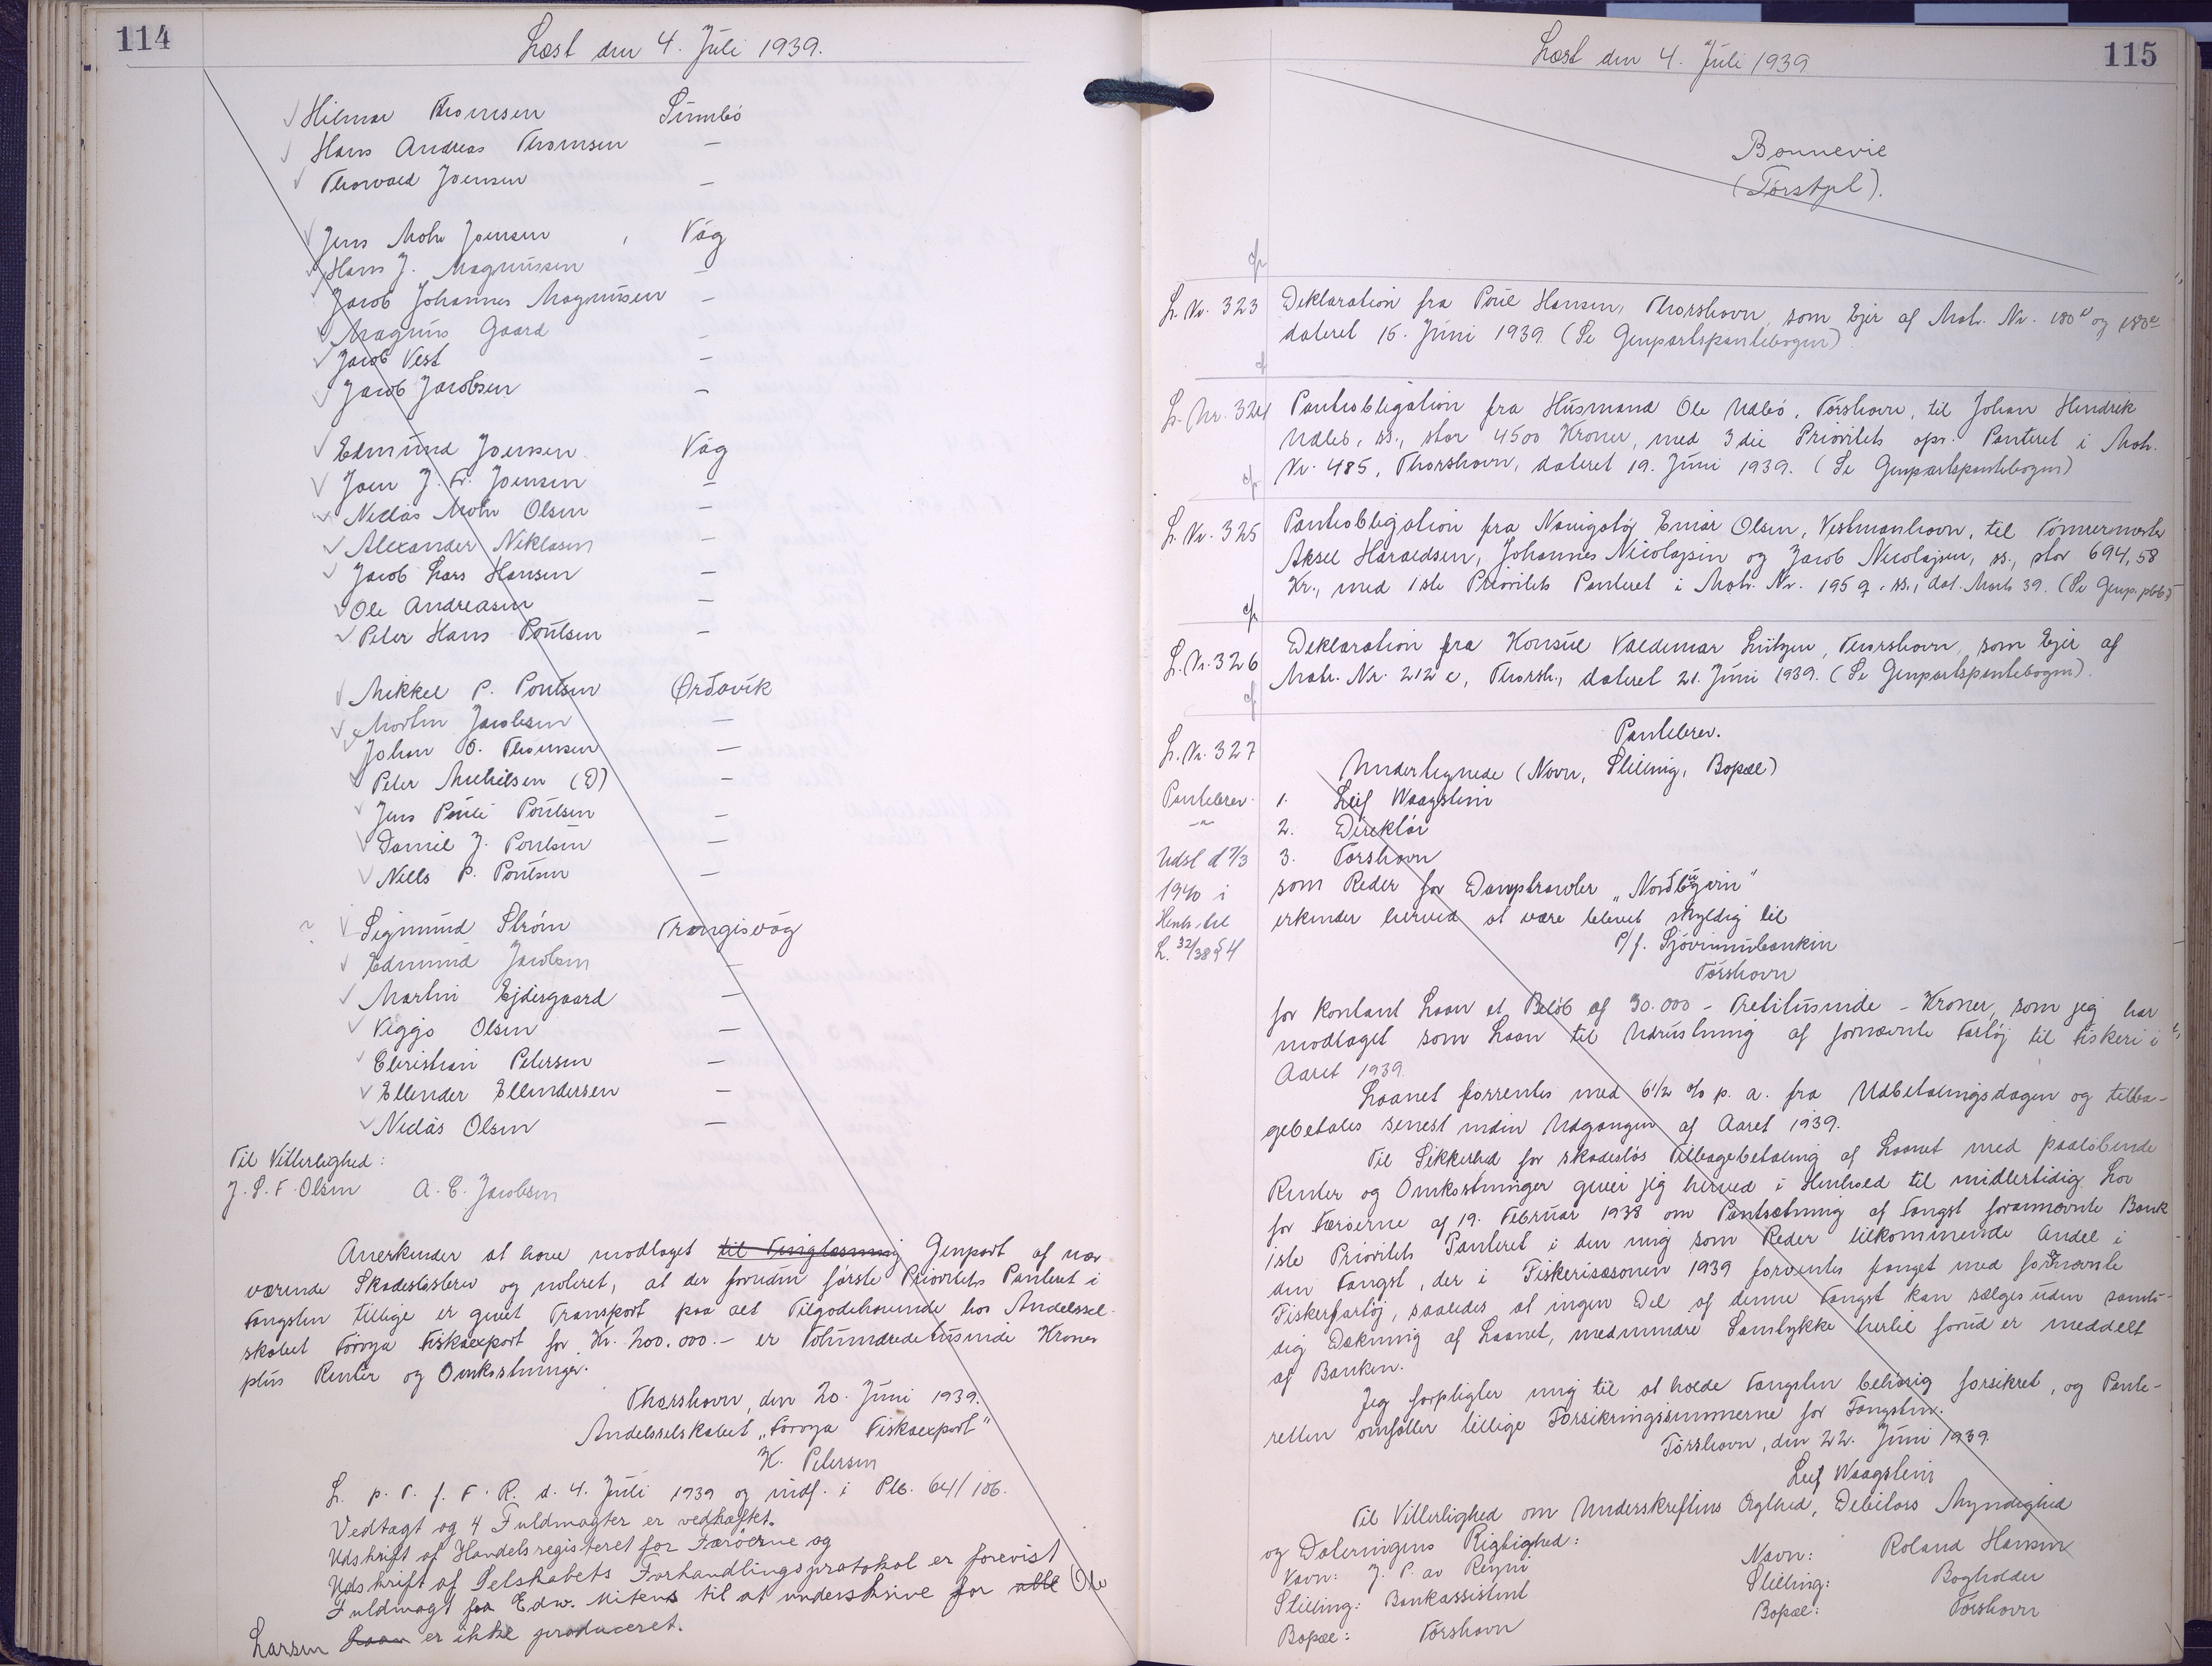 114
Læst den 4. Juli 1939.
Hilmar Thomsen Sumbö
Hans Andreas Thomsen —
Thorvald Joensen —
Jens Mohr Joensen Vág
Hans J. Magnussen —
Jacob Johannes Magnussen —
Magnus Gaard —
Jacob Vest —
Jacob Jacobsen —
Edmund Joensen Vág
Joen J. Fr. Joensen —
Niclas Mohr Olsen —
Alexander Niklasen —
Jacob Lars Hansen —
Ole Andreasen —
Peter Hans Poulsen —
Mikkel P. Poulsen Ørðavík
Morten Jacobsen —
Johan O. Thomsen —
Peter Michelsen (D) —
Jens Pauli Poulsen —
Daniel J. Poulsen —
Niels P. Poulsen —
Sigmund Strøm Trongisvág
Edmund Jacobsen —
Martin Ejdersgaard —
Viggo Olsen —
Christian Petersen —
Ellender Ellendersen —
Niclas Olsen —
Til Vitterlighed:
J. S. F. Olsen A. C. Jacobsen
Anerkender at have modtaget til Tinglæsning Genpart af nær-
værende Skadesløsbrev og noteret, at der foruden første Prioritets Panteret i
Fangsten tillige er givet Transport paa alt Tilgodehavende hos Andelssel-
skabet Føroya Fiskaexport for Kr. 200.000.— er Tohundredetusinde Kroner
plus Renter og Omkostninger.
Thorshavn, den 20. Juni 1939.
Andelsselskabet „Føroya Fiskaexport"
K. Petersen
L. p. T. f. F. R. d. 4. Juli 1939 og indf. i Pb. 64/106.
Vedtægt og 4 Fuldmagter er vedhæftet.
Udskrift af Handelsregisteret for Færöerne og
Udskrift af Selskabets Forhandlingsprotokol er forevist
Fuldmagt fra Edw. Mitens til at underskrive for alle Ole
Larsen er ikke produceret.
115
Læst den 4. Juli 1939
Bonnevie
(Tórstpl).
L. Nr. 323 Deklaration fra Poul Hansen, Thorshavn, som Ejer af Matr. Nr. 180 d og 180 e
dateret 15. Juni 1939. (Se Genpartspantebogen)
L. Nr. 324 Panteobligation fra Husmand Ole Udbø, Tórshavn, til Johan Hendrik
Udbø, ss., stor 4500 Kroner, med 3die Prioritets opr. Panteret i Matr.
Nr. 485, Thorshavn, dateret 19. Juni 1939. (Se Genpartspantebogen)
L. Nr. 325 Panteobligation fra Navigatør Einar Olsen, Vestmanhavn, til Tømrermester
Aksel Haraldsen, Johannes Nicolajsen og Jacob Nicolajsen, ss., stor 694,58
Kr., med 1ste Prioritets Panteret i Matr. Nr. 195 q. ss., dat. Marts 39. (Se Genp. pbb)
L. Nr. 326 Deklaration fra Konsul Valdemar Lützen, Thorshavn, som Ejer af
Matr. Nr. 212 e, Thorsh., dateret 21. Juni 1939. (Se Genpartspantebogen).
L. Nr. 327 Pantebrev.
Undertegnede (Navn, Stilling, Bopæl)
Pantebrev. 1. Leif Waagstein
2. Direktör
Udsl d 7/3 3. Torshavn
1940 i som Reder for Damptrawler „Norðbúgvin"
Henh. til erkender herved at være blevet skyldig til
L. 32/38 § 4 P/f. Sjóvinnubankin
Tórshavn
for kontant Laan et Beløb af 30.000 — Tretitusinde — Kroner, som jeg har
modtaget som Laan til Udrustning af fornævnte Fartøj til Fiskeri i
Aaret 1939.
Laanet forrentes med 6½ % p. a. fra Udbetalingsdagen og tilba-
gebetales senest inden Udgangen af Aaret 1939.
Til Sikkerhed for skadesløs Tilbagebetaling af Laanet med paaløbende
Renter og Omkostninger giver jeg herved i Henhold til midlertidig Lov
for Færöerne af 19. Februar 1938 om Pantsætning af Fangst forannævnte Bank
1ste Prioritets Panteret i den mig som Reder tilkommende Andel i
den Fangst, der i Fiskerisæsonen 1939 forventes fanget med fornævnte
Fiskerfartöj, saaledes at ingen Del af denne Fangst kan sælges uden samti-
dig Dækning af Laanet, medmindre Samtykke hertil forud er meddelt
af Banken.
Jeg forpligter mig til at holde Fangsten behørig forsikret, og Pante-
retten omfatter tillige Forsikringssummerne for Fangsten.
Tórshavn, den 22. Juni 1939.
Leif Waagstein
Til Vitterlighed om Underskriftens Ægthed, Debitors Myndighed
og Dateringens Rigtighed:
Navn: J. P. av Reyni Navn: Roland Hansen
Stilling: Bankassistent Stilling: Bogholder
Bopæl: Tórshavn Bopæl: Tórshavn